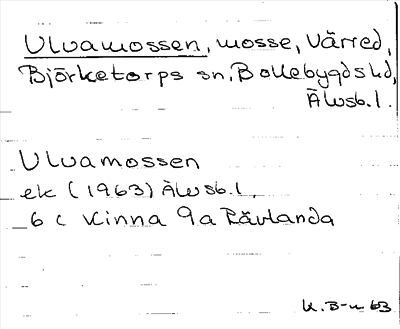 Ulvamossen, mosse, Värred,
Björketorps sn, Bollebygds hd,
Älvsb.l.
Ulvamossen
ek (1963) Älvsb.l.
6 c Kinna 9a Rävlanda
K.B-n 63